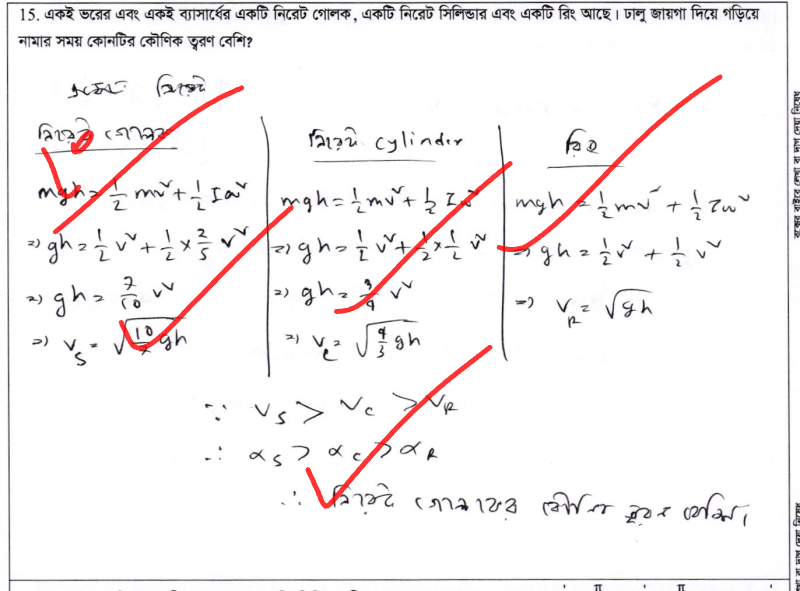 15. একই ভরের এবং একই ব্যাসার্ধের একটি নিরেট গোলক, একটি নিরেট সিলিন্ডার এবং একটি রিং আছে। ঢালু জায়গা দিয়ে গড়িয়ে
নামার সময় কোনটির কৌণিক ত্বরণ বেশি?
নিরেট গোলক
mgh = 1/2 mv² + 1/2 Iω²
=> gh = 1/2 v² + 1/2 × 2/5 v²
=> gh = 7/10 v²
=> v_S = √(10/7 gh)
নিরেট cylinder
mgh = 1/2 mv² + 1/2 Iω²
=> gh = 1/2 v² + 1/2 × 1/2 v²
=> gh = 3/4 v²
=> v_c = √(4/3 gh)
রিং
mgh = 1/2 mv² + 1/2 Iω²
=> gh = 1/2 v² + 1/2 v²
=> v_R = √gh
∵ v_S > v_c > v_R
∴ α_S > α_c > α_R
∴ নিরেট গোলকের কৌণিক ত্বরণ বেশি।